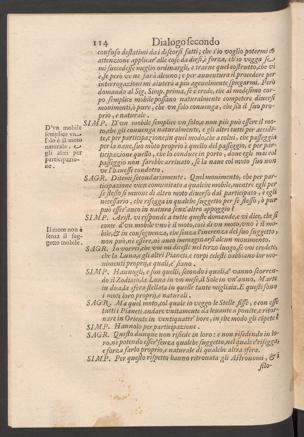 114 Dialogo secondo
confuso destatimi da i discorsi fatti; che s'io voglio potermi
attenzione applicar' alle cose da dirsi, è forza, ch'io vegga se
mi succedesse meglio ordinargli, e trarne quel costrutto, che vi
è, se però ve ne sarà alcuno; e per avventura il procedere per
interrogazioni mi aiuterà a più agevolmente spiegarmi. Però
domando al Sig. Simp. prima, se è crede, che al medesimo cor-
po semplice mobile possano naturalmente competere diversi
movimenti, ò pure, che vn solo convenga, che sia il suo pro-
prio, e naturale.
SIMP. D'vn mobile semplice vn solo, e non più può essere il mo-
to, che gli convenga naturalmente, e gli altri tutti per acciden-
te, e per participazione; in quel modo, che a colui, che passeggia
per la nave, suo moto proprio è quello del passeggio, e per par-
ticipazione quello, che lo conduce in porto, dove egli mai col
passeggio non sarebbe arrivato, se la nave col moto suo non
ve l'havesse condotto.
D'vn mobile
semplice vn so-
lo è il moto
naturale, e
gli altri per
participazio-
ne.
SAGR. Ditemi secondariamente. Quel movimento, che per par-
ticipazione vien comunicato a qualche mobile, mentre egli per
se stesso si muove di altro moto diverso dal participato, è egli
necessario, che risegga in qualche suggetto per se stesso, ò pur
può esser' anco in natura senz'altro appoggio?
SIMP. Arist. vi risponde a tutte queste domande, e vi dice, che sì
come d'vn mobile vno è il moto, così di vn moto, vno è il mo-
bile, & in conseguenza, che senza l'inerenza del suo suggetto,
non può, nè essere, nè anco immaginarsi alcun movimento.
Il moto non è
senza il sug-
getto mobile.
SAGR. Io vorrei, che voi mi diceste nel terzo luogo, se voi credete
che la Luna, e gli altri Pianeti, e corpi celesti habbiano lor mo-
vimenti proprij, e quali e' siano.
SIMP. Hannogli, e son quelli, secondo i quali e' vanno scorren-
do il Zodiaco, la Luna in vn mese, il Sole in vn' anno, Marte
in dua, la sfera stellata in quelle tante migliaia. E questi sono
i moti loro proprij, e naturali.
SAGR. Ma quel moto, col quale io veggo le Stelle fisse, e con esse
tutti i Pianeti andare vnitamente da levante a ponente, e ritor-
nare in Oriente in ventiquattr' hore, in che modo gli compete?
SIMP. Hannolo per participazione.
SAGR. Questo dunque non risiede in loro: e non risedendo in lo-
ro, nè potendo esser' senza qualche suggetto, nel quale e' risegga,
è forza farlo proprio, e naturale di qualche altra sfera.
SIMP. Per questo rispetto hanno ritrovata gli Astronomi, & i
filo-